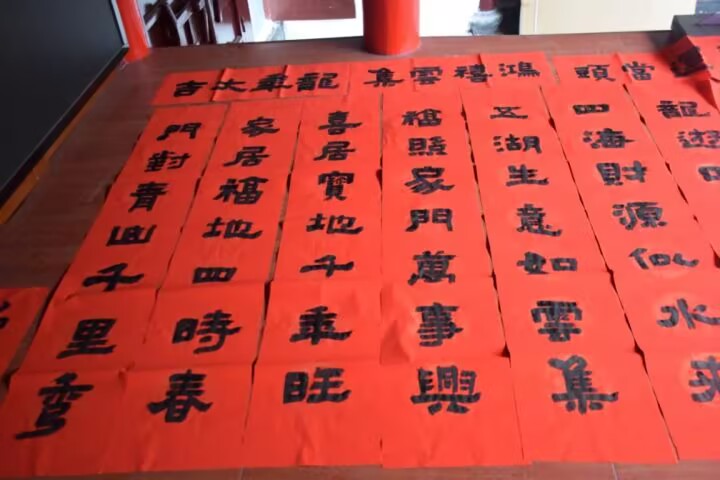 當頭
鴻禧雲集
龍年大吉
龍遊
四海財源似水來
五湖生意如雲集
福照家門萬事興
喜居寶地千年旺
家居福地四時春
門對青山千里秀